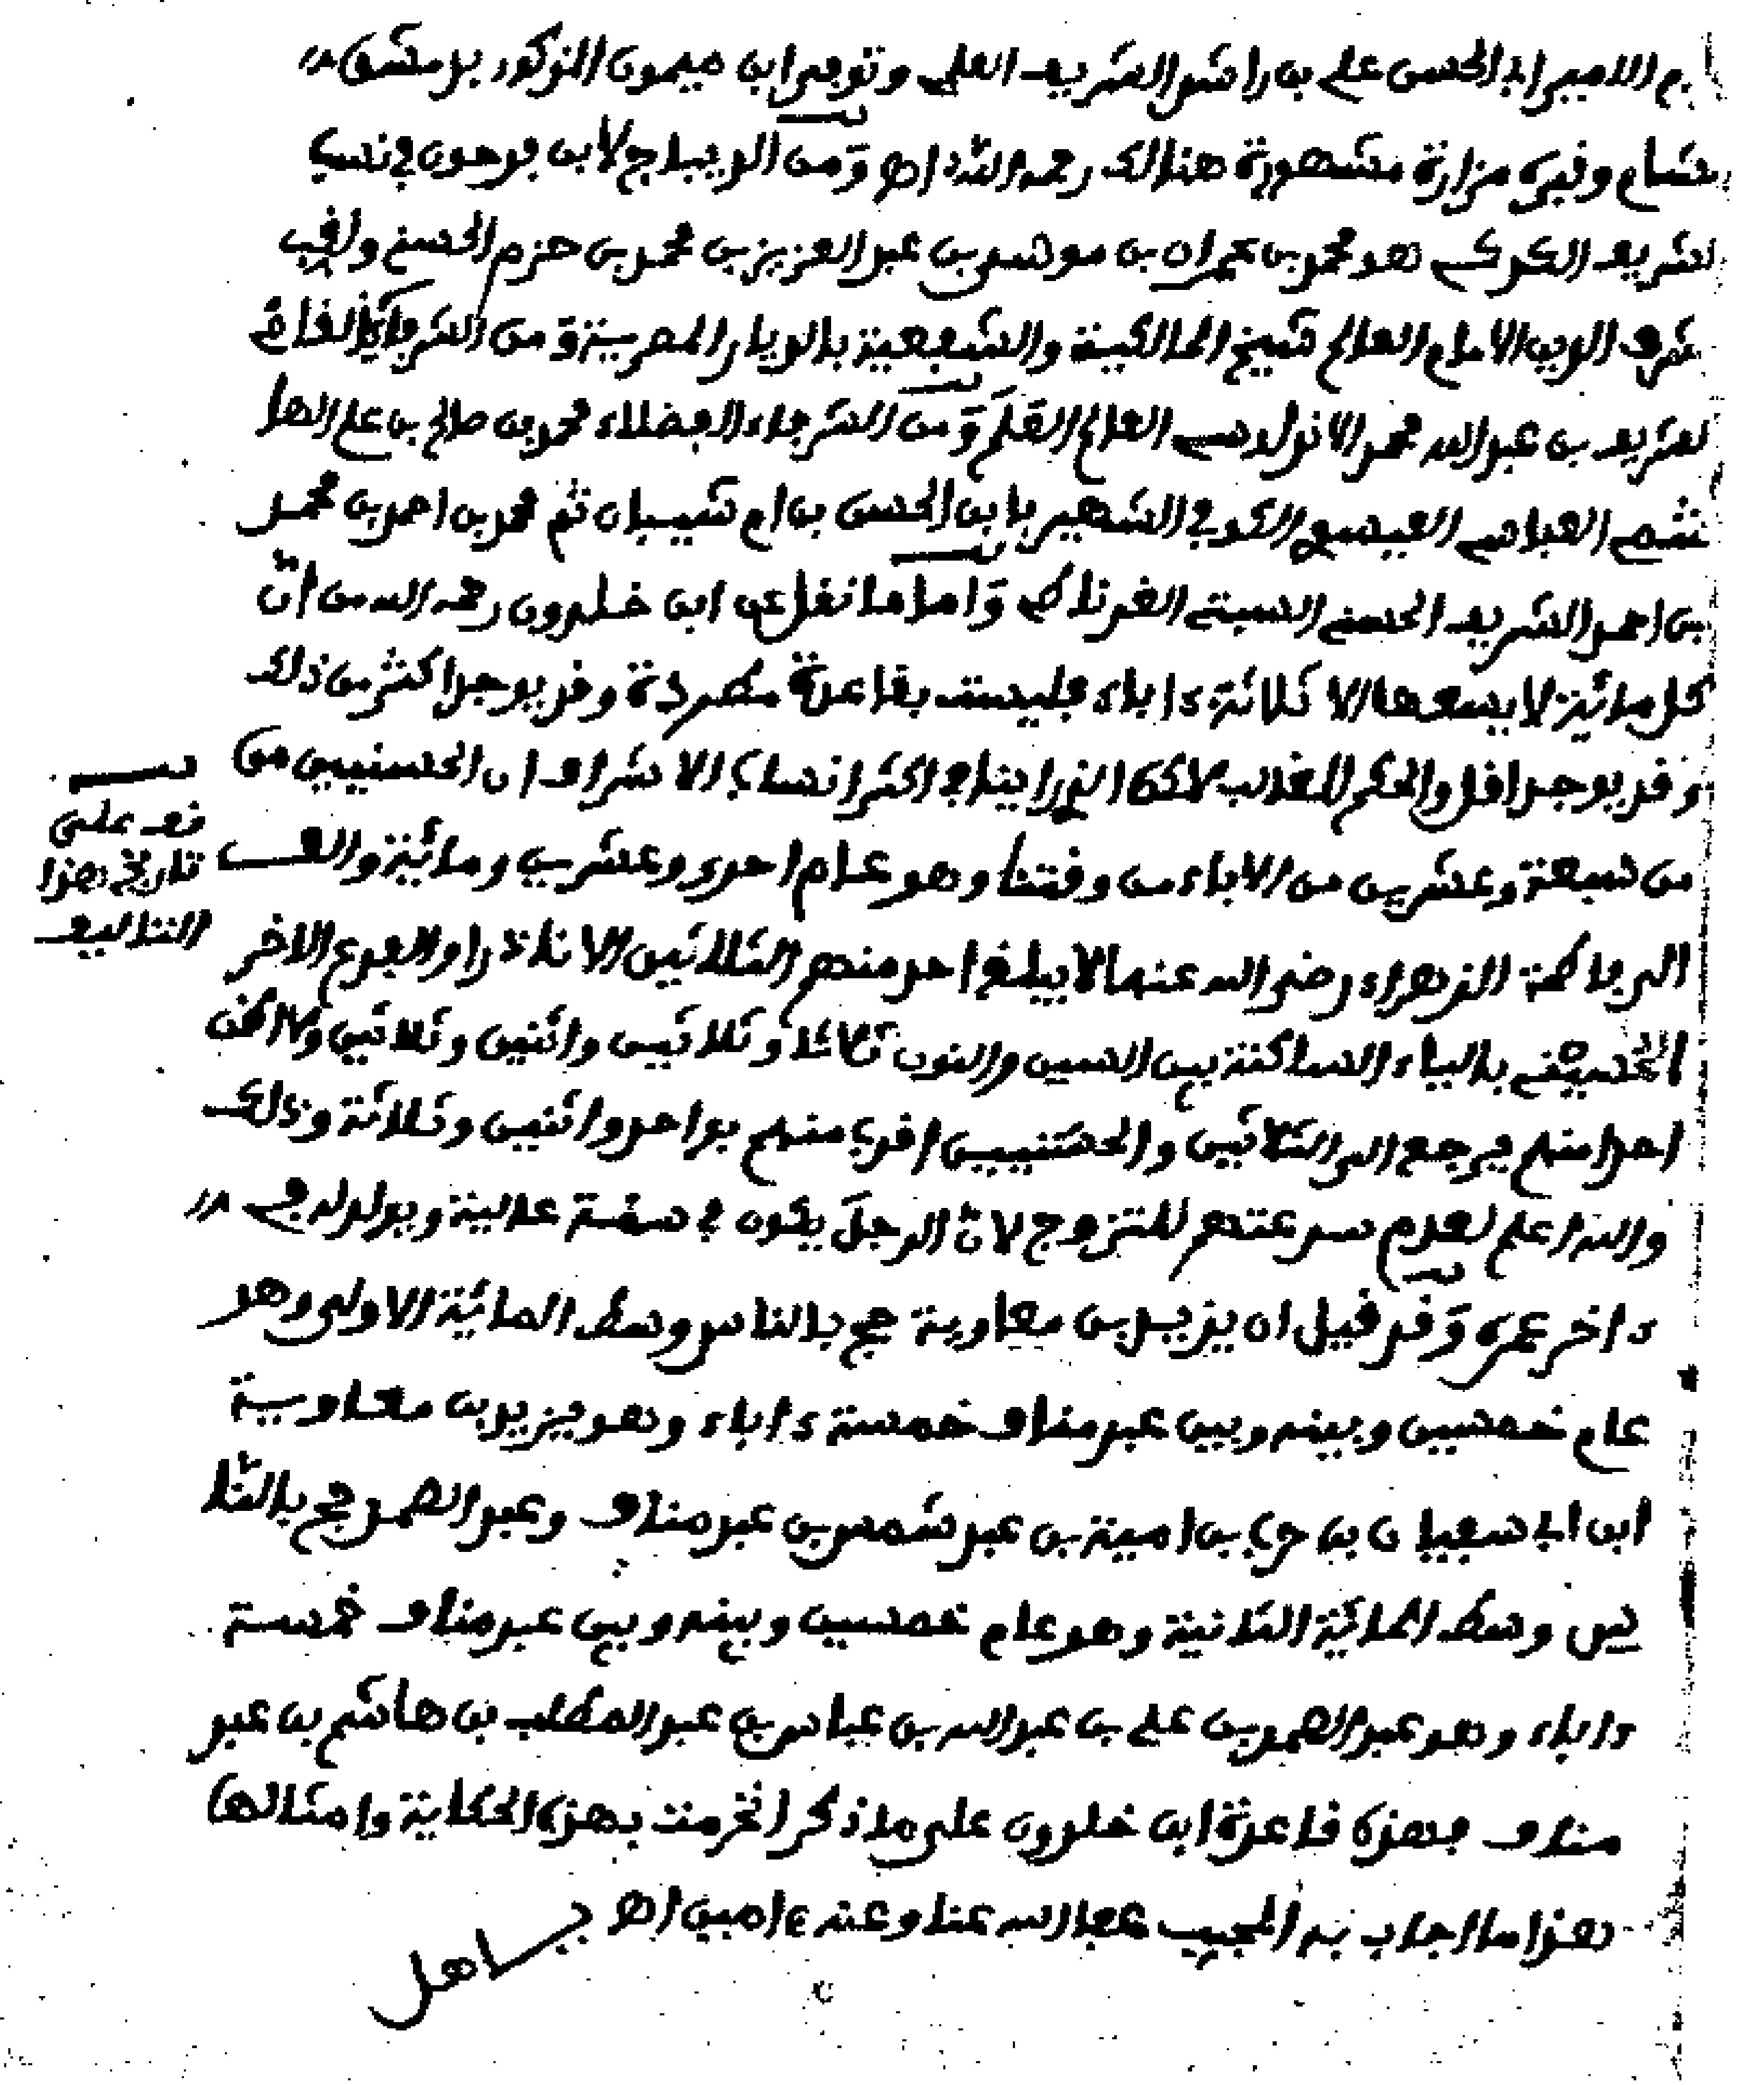 الامير ابا الحسن علي بن راشد الشريف العلمي وتوفي ابن ميمون المذكور بدمشق
الشام وقبره مزارة مشهورة هنالك رحمه الله اه ومن الديباج لابن فرحون في نسب
الشريف الكركي هو محمد بن عمران بن موسى بن عبد العزيز بن محمد بن حزم الحسني ولقب
شرف الدين الامام العالم شيخ المالكية والشافعية بالديار المصرية ومن الشرفاء
الشريف بن عبد الله محمد الاندلسي العالم العلم ومن الشرفاء الفضلاء محمد بن صالح بن علي الها
شمي العباسي العيسي الكوفي الشهير بابن الحسن بن ام شيبان ثم محمد بن احمد بن محمد
بن احمد الشريف الحسني السبتي الغرناطي واما ما نقل عن ابن خلدون رحمه الله من ان
كل مائة لا يسعها الا ثلاثة ءاباء فليست بقاعدة مطردة وقد يوجد اكثر من ذلك
وقد يوجد اقل والحكم للغالب لاكن الذي راينا في اكثر انساب الاشراف ان الحسنيين من
من سبعة وعشرين من الاباء من وقتنا وهو عام احدى وعشرين ومائة والف
الى فاطمة الزهراء رضي الله عنها لا يبلغ احد منهم الثلاثين الا نادرا والفرع الاخر
الحسيني بالياء الساكنة بين السين والنون ثلاثا وثلاثين واثنين وثلاثين
احدا منهم يرجع الى الثلاثين والحسنيين اقرب منهم بواحد واثنين وثلاثة وذلك
والله اعلم لعدم سرعتهم للتزوج لان الرجل يكون في سنة عالية ويولد له في
ءاخر عمره وقد قيل ان يزيد بن معاوية حج بالناس وسط المائة الاولى وهو
عام خمسين وبينه وبين عبد مناف خمسة ءاباء وهو يزيد بن معاوية
ابن ابي سفيان بن حرب بن امية بن عبد شمس بن عبد مناف وعبد الصمد حج بالنا
س وسط المائة الثانية وهو عام خمسين وبينه وبين عبد مناف خمسة
ءاباء وهو عبد الصمد بن علي بن عبد الله بن عباس بن عبد المطلب بن هاشم بن عبد
مناف فهذه قاعدة ابن خلدون على ما ذكر انخرمت بهذه الحكاية وامثالها
هذا ما اجاب به المجيب عفا الله عنا وعنه ءامين اه
قف على
تاريخ هذا
التاليف